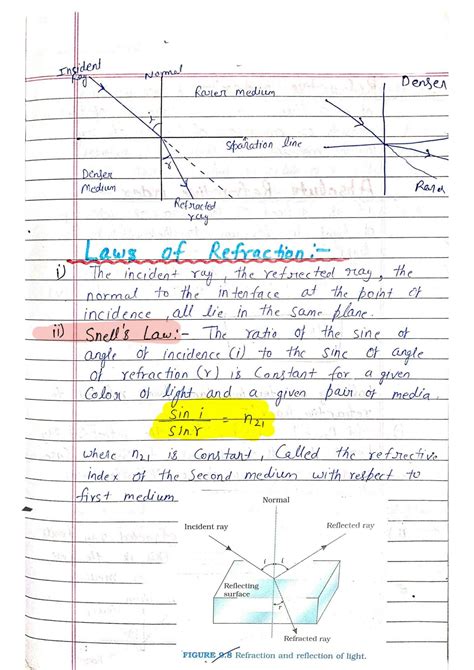 Incident
Ray
Normal
Rarer medium
Denser
i
Sparation line
r
Denser
Medium
Refracted
ray
Rarer
Laws of Refraction:-
i) The incident ray, the refracted ray, the
normal to the interface at the point of
incidence, all lie in the same plane.
ii) Snell's Law:- The ratio of the sine of
angle of incidence (i) to the sine of angle
of refraction (r) is Constant for a given
Color of light and a given pair of media.
sin i
= n21
sin r
where n21 is Constant, Called the refrective
index of the Second medium with respect to
first medium
Normal
Incident ray
Reflected ray
i i
Reflecting
surface
r
Refracted ray
FIGURE 9.8 Refraction and reflection of light.